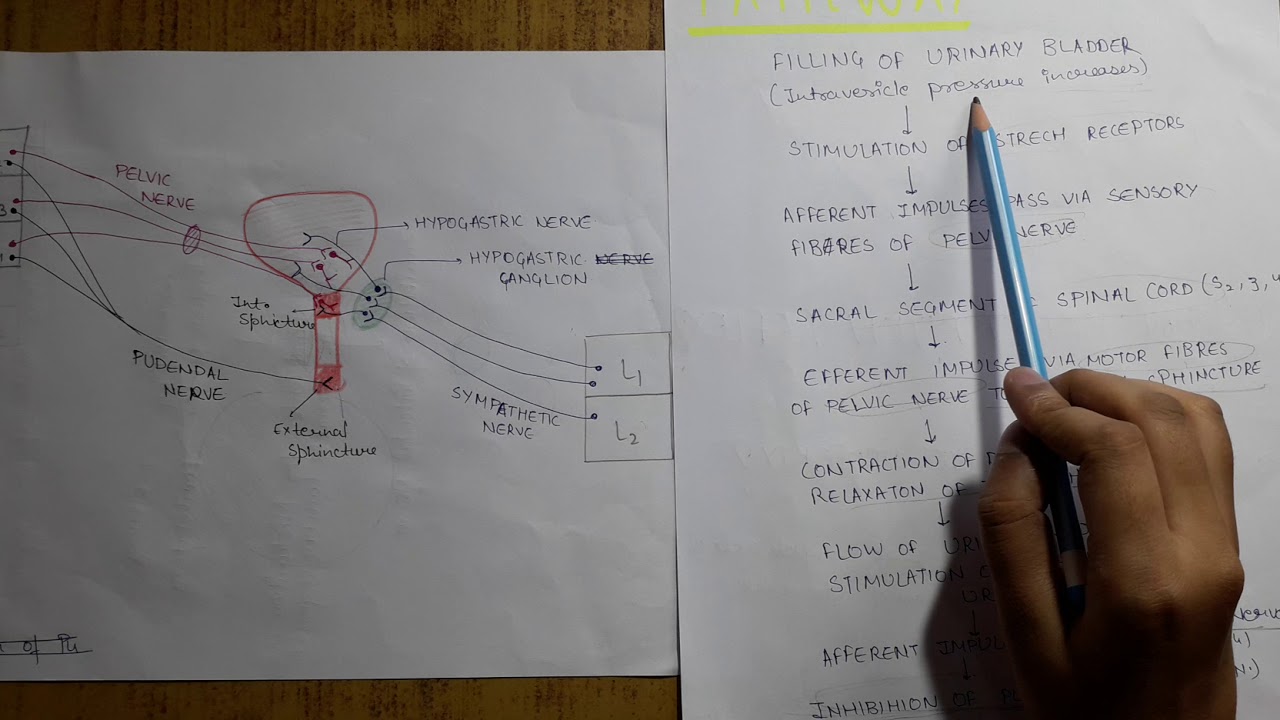 PELVIC
NERVE
HYPOGASTRIC NERVE
HYPOGASTRIC NERVE
GANGLION
Int.
Sphincture
PUDENDAL
NERVE
External
Sphincture
SYMPATHETIC
NERVE
L1
L2
3
of
PATHWAY
FILLING OF URINARY BLADDER
(Intravesicle pressure increases)
STIMULATION OF STRECH RECEPTORS
AFFERENT IMPULSES PASS VIA SENSORY
FIBRES OF PELVIC NERVE
SACRAL SEGMENT SPINAL CORD (S2,3,4
EFFERENT IMPULSES VIA MOTOR FIBRES
OF PELVIC NERVE SPHINCTURE
CONTRACTION OF
RELAXATON OF
FLOW OF
STIMULATION
AFFERENT
INHIBIHION OF